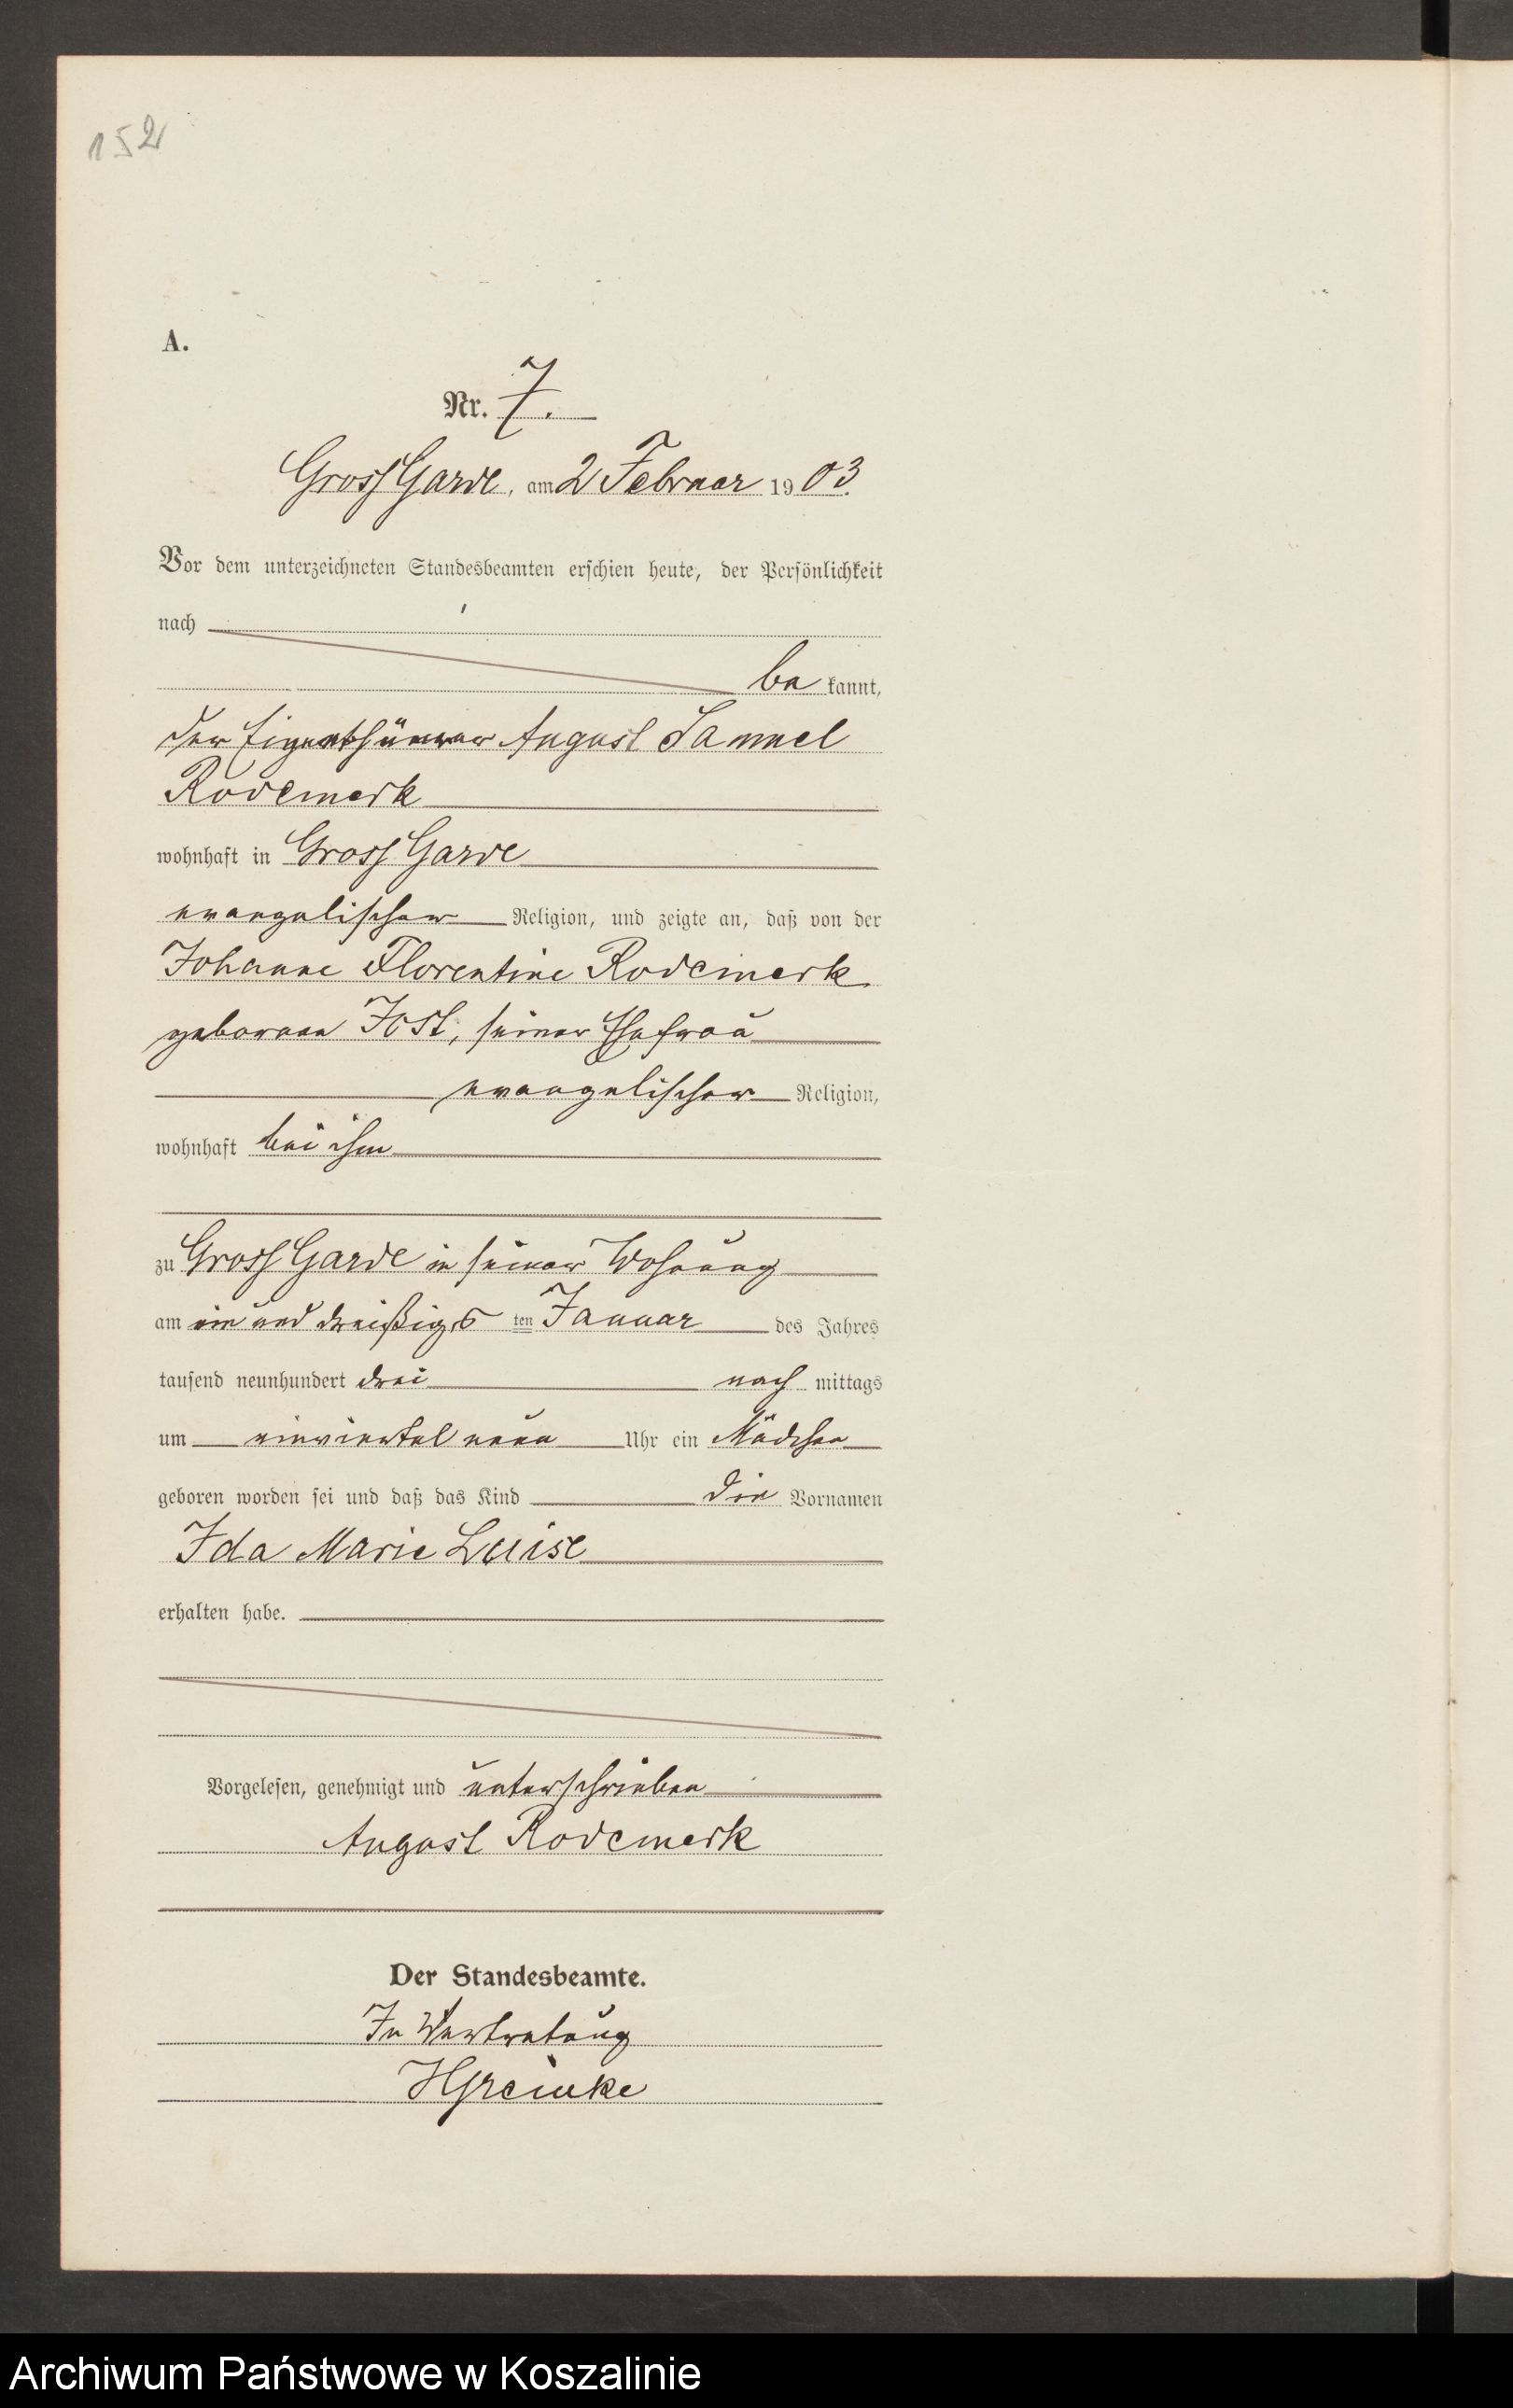 152
A.
Nr. 7.
Gross Garde, am 2 Februar 1903.
Vor dem unterzeichneten Standesbeamten erschien heute, der Persönlichkeit
nach
be kannt,
der Eigenthümer August Samuel
Rodemerk
wohnhaft in Gross Garde
evangelischer Religion, und zeigte an, daß von der
Johanne Florentine Rodemerk
geborene Jost, seiner Ehefrau
evangelischer Religion,
wohnhaft bei ihm
zu Gross Garde in seiner Wohnung
am ein und dreißigs ten Januar des Jahres
tausend neunhundert drei nach mittags
um einviertel neun Uhr ein Mädchen
geboren worden sei und daß das Kind die Vornamen
Ida Marie Luise
erhalten habe.
Vorgelesen, genehmigt und unterschrieben
August Rodemerk
Der Standesbeamte.
In Vertretung
HGreinke
Archiwum Państwowe w Koszalinie